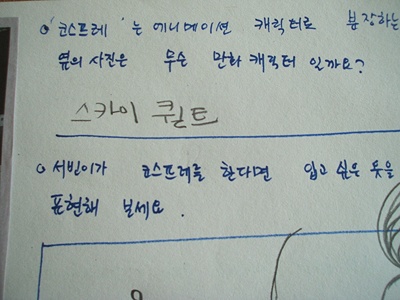 '코스프레'는 에니메이션 캐릭터로 분장하는
옆의 사진은 무슨 만화 캐릭터 일까요?
스카이 퀼트
서빈이가 코스프레를 한다면 입고 싶은 옷을
표현해 보세요.